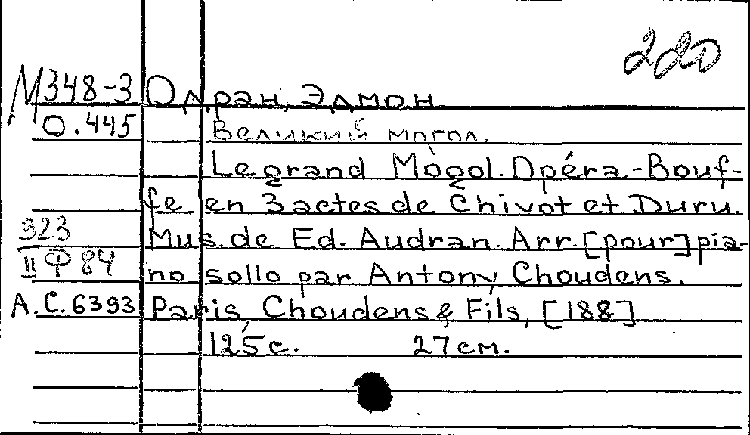 220
М348-3 Одран, Эдмон
О.445 Великий могол.
Le grand Mogol. Opéra-Bouf-
fe en 3 actes de Chivot et Duru.
323 Mus. de Ed. Audran. Arr. [pour] pia-
II Ф 84 no sollo par Antony Choudens.
А.С.6393 Paris, Choudens & Fils, [188]
125 с. 27 см.